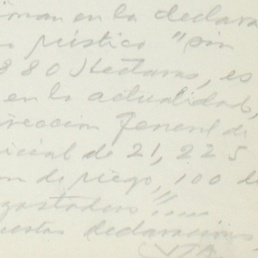 en la declara
rústico "pin
880 Hectáreas, es
en la actualidad,
irección General de
icial de 21,225
on de riego, 100 de
agostadero".....
uestas declaraciones,